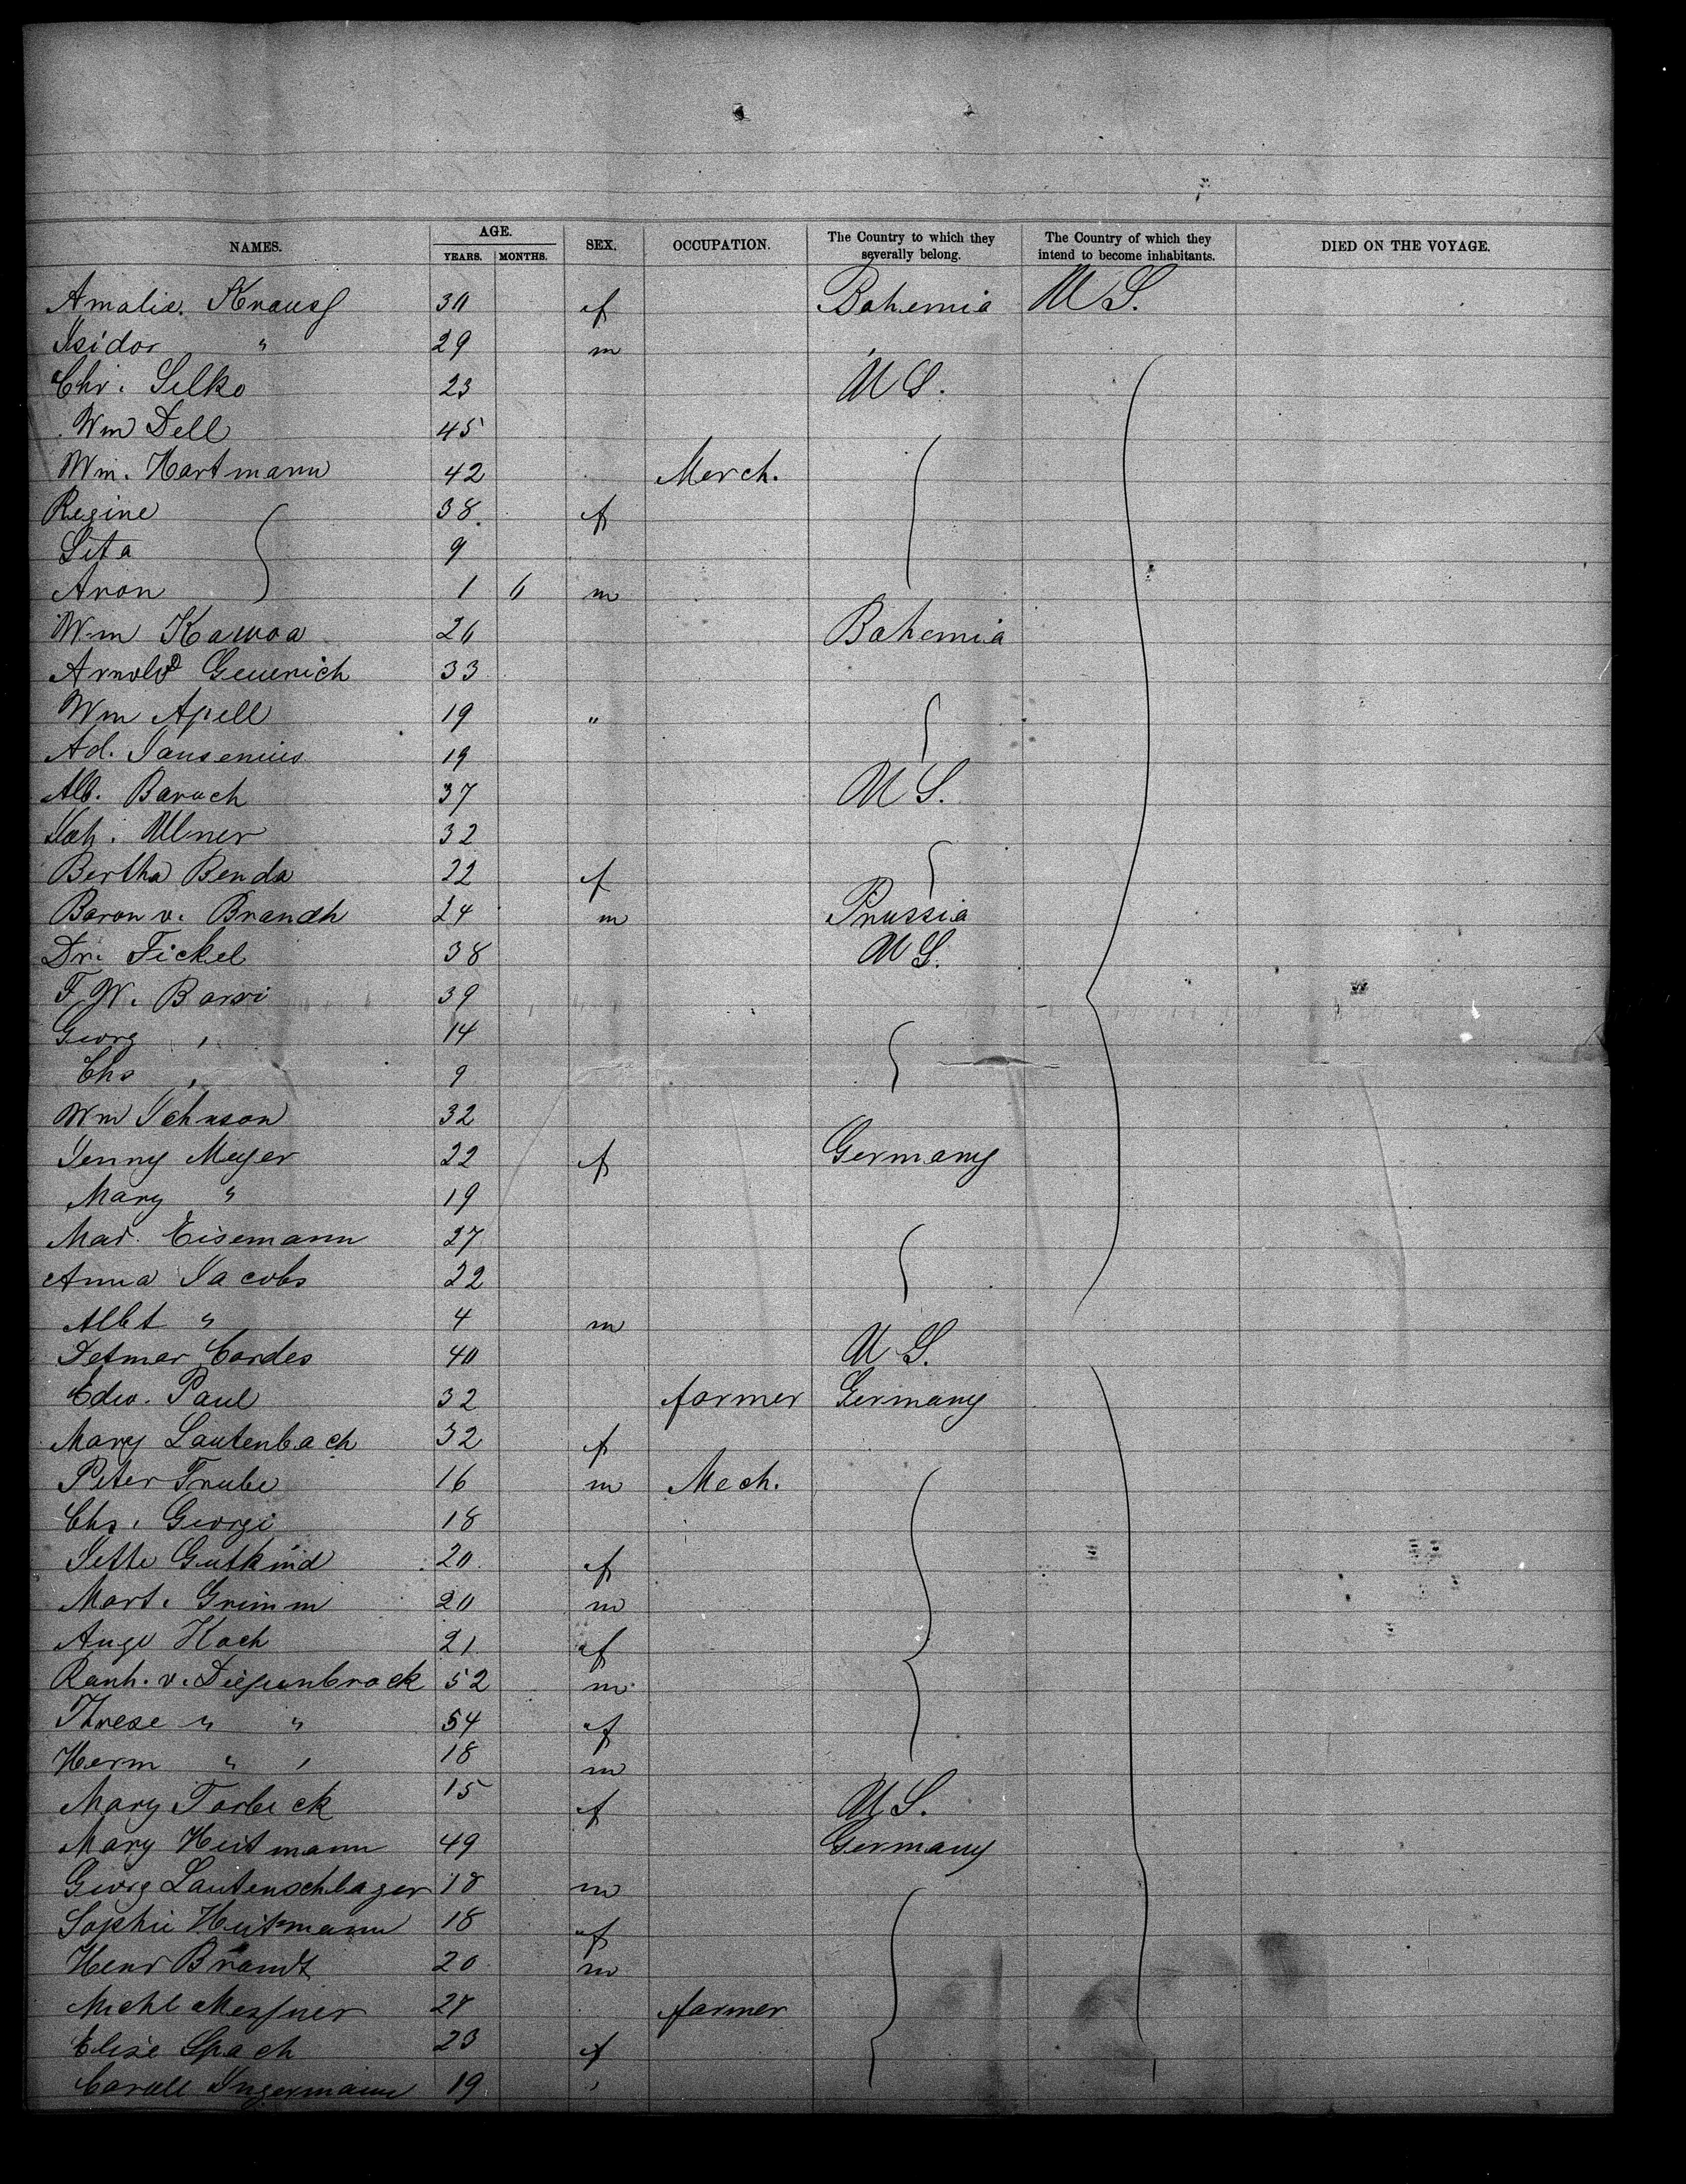 NAMES. AGE. YEARS. MONTHS. SEX. OCCUPATION. The Country to which they severally belong. The Country of which they intend to become inhabitants. DIED ON THE VOYAGE.
Amalia. Krauss 30 f Bohemia U S.
Isidor " 29 m
Chr. Selko 23 U S.
Wm Dell 45
Wm. Hartmann 42 Merch.
Regine 38 f
Sita 9
Aron 1 6 m
Wm Kawoa 26 Bohemia
Arnold 33
Wm Apell 19 "
Ad. Jansenius 19
Alb. Baruch 37 U S.
Ullner 32
Bertha Benda 22 f
Baron v. Brandh 24 m Prussia
Dr. Fickel 38 U S.
F W. Barri 39
Georg " 14
Chs " 9
Wm Johnson 32
Jenny Meyer 22 f Germany
Mary " 19
Mar. Eisemann 27
Anna Jacobs 22
Albt " 4 m
Detmer Cordes 40 U S.
Edw. Paul 32 farmer Germany
Mary Lautenbach 32 f
Peter Trube 16 m Mech.
Chs. Georgi 18
Jette Gutkind 20 f
Mart. Grimm 20 m
Auge Koch 21 f
Ranh. v. Diepenbrock 52 m
Threse " " 54 f
Herm " " 18 m
Mary Torbeck 15 f U S.
Mary Heitmann 49 Germany
Georg Lautenschlager 18 m
Sophie Heitmann 18 f
Henr Brandt 20 m
Michl Messner 27 farmer
Elise Spach 23 f
Ingermann 19 "